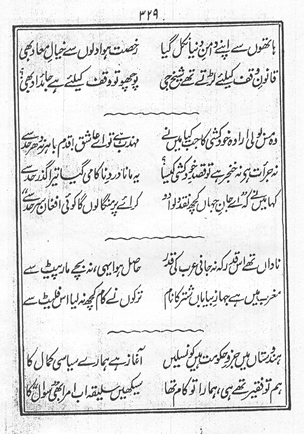 ۳۲۹
ہاتھوں سے اپنے دین و دنیا نکل گیا رخصت ہوا دلوں سے خیالِ معاد بھی
قانونِ وقف کیلئے لڑتے تھے شیخ جی پوچھو تو وقف کیلئے ہے جائداد بھی
وہ مس بولی ارادہ خودکشی کا جب کیا میں نے مہذب ہے تو اے عاشق قدم باہر نہ دھر حد سے
نہ جرأت ہے نہ خنجر ہے تو قصدِ خودکشی کیسا یہ مانا دردِ ناکامی گیا تیرا گذر حد سے
کہا میں نے کہ اے جانِ جہاں کچھ نقد دلوا دو کرائے پر منگالوں گا کوئی افغان سرحد سے
ناداں تھے اس قدر کہ نہ جانی عرب کی قدر حاصل ہوا یہی، نہ بچے مار پیٹ سے
مغرب میں ہے جہاز بیاباں شتر کا نام ترکوں نے کام کچھ نہ لیا اس فلیٹ سے
ہندوستاں میں جزوِ حکومت ہیں کونسلیں آغاز ہے ہمارے سیاسی کمال کا
ہم تو فقیر تھے ہی، ہمارا تو کام تھا سیکھیں سلیقہ اب امرا بھی سوال کا